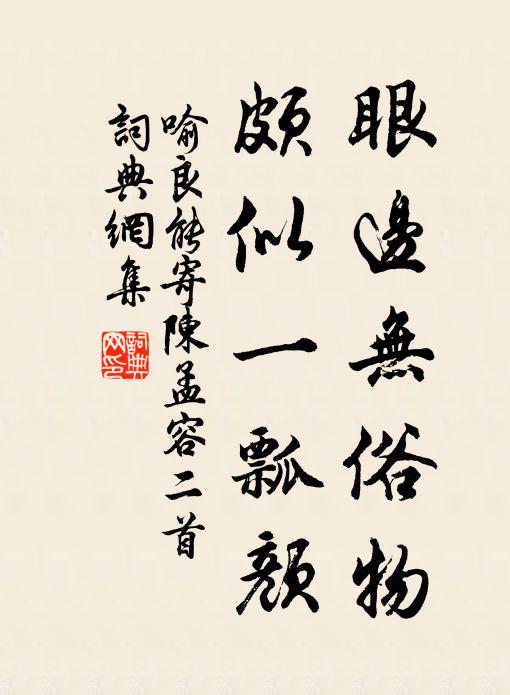 眼邊無俗物
頗似一瓢顏
喻良能寄陳孟容二首
詞典網集
詞典
网印